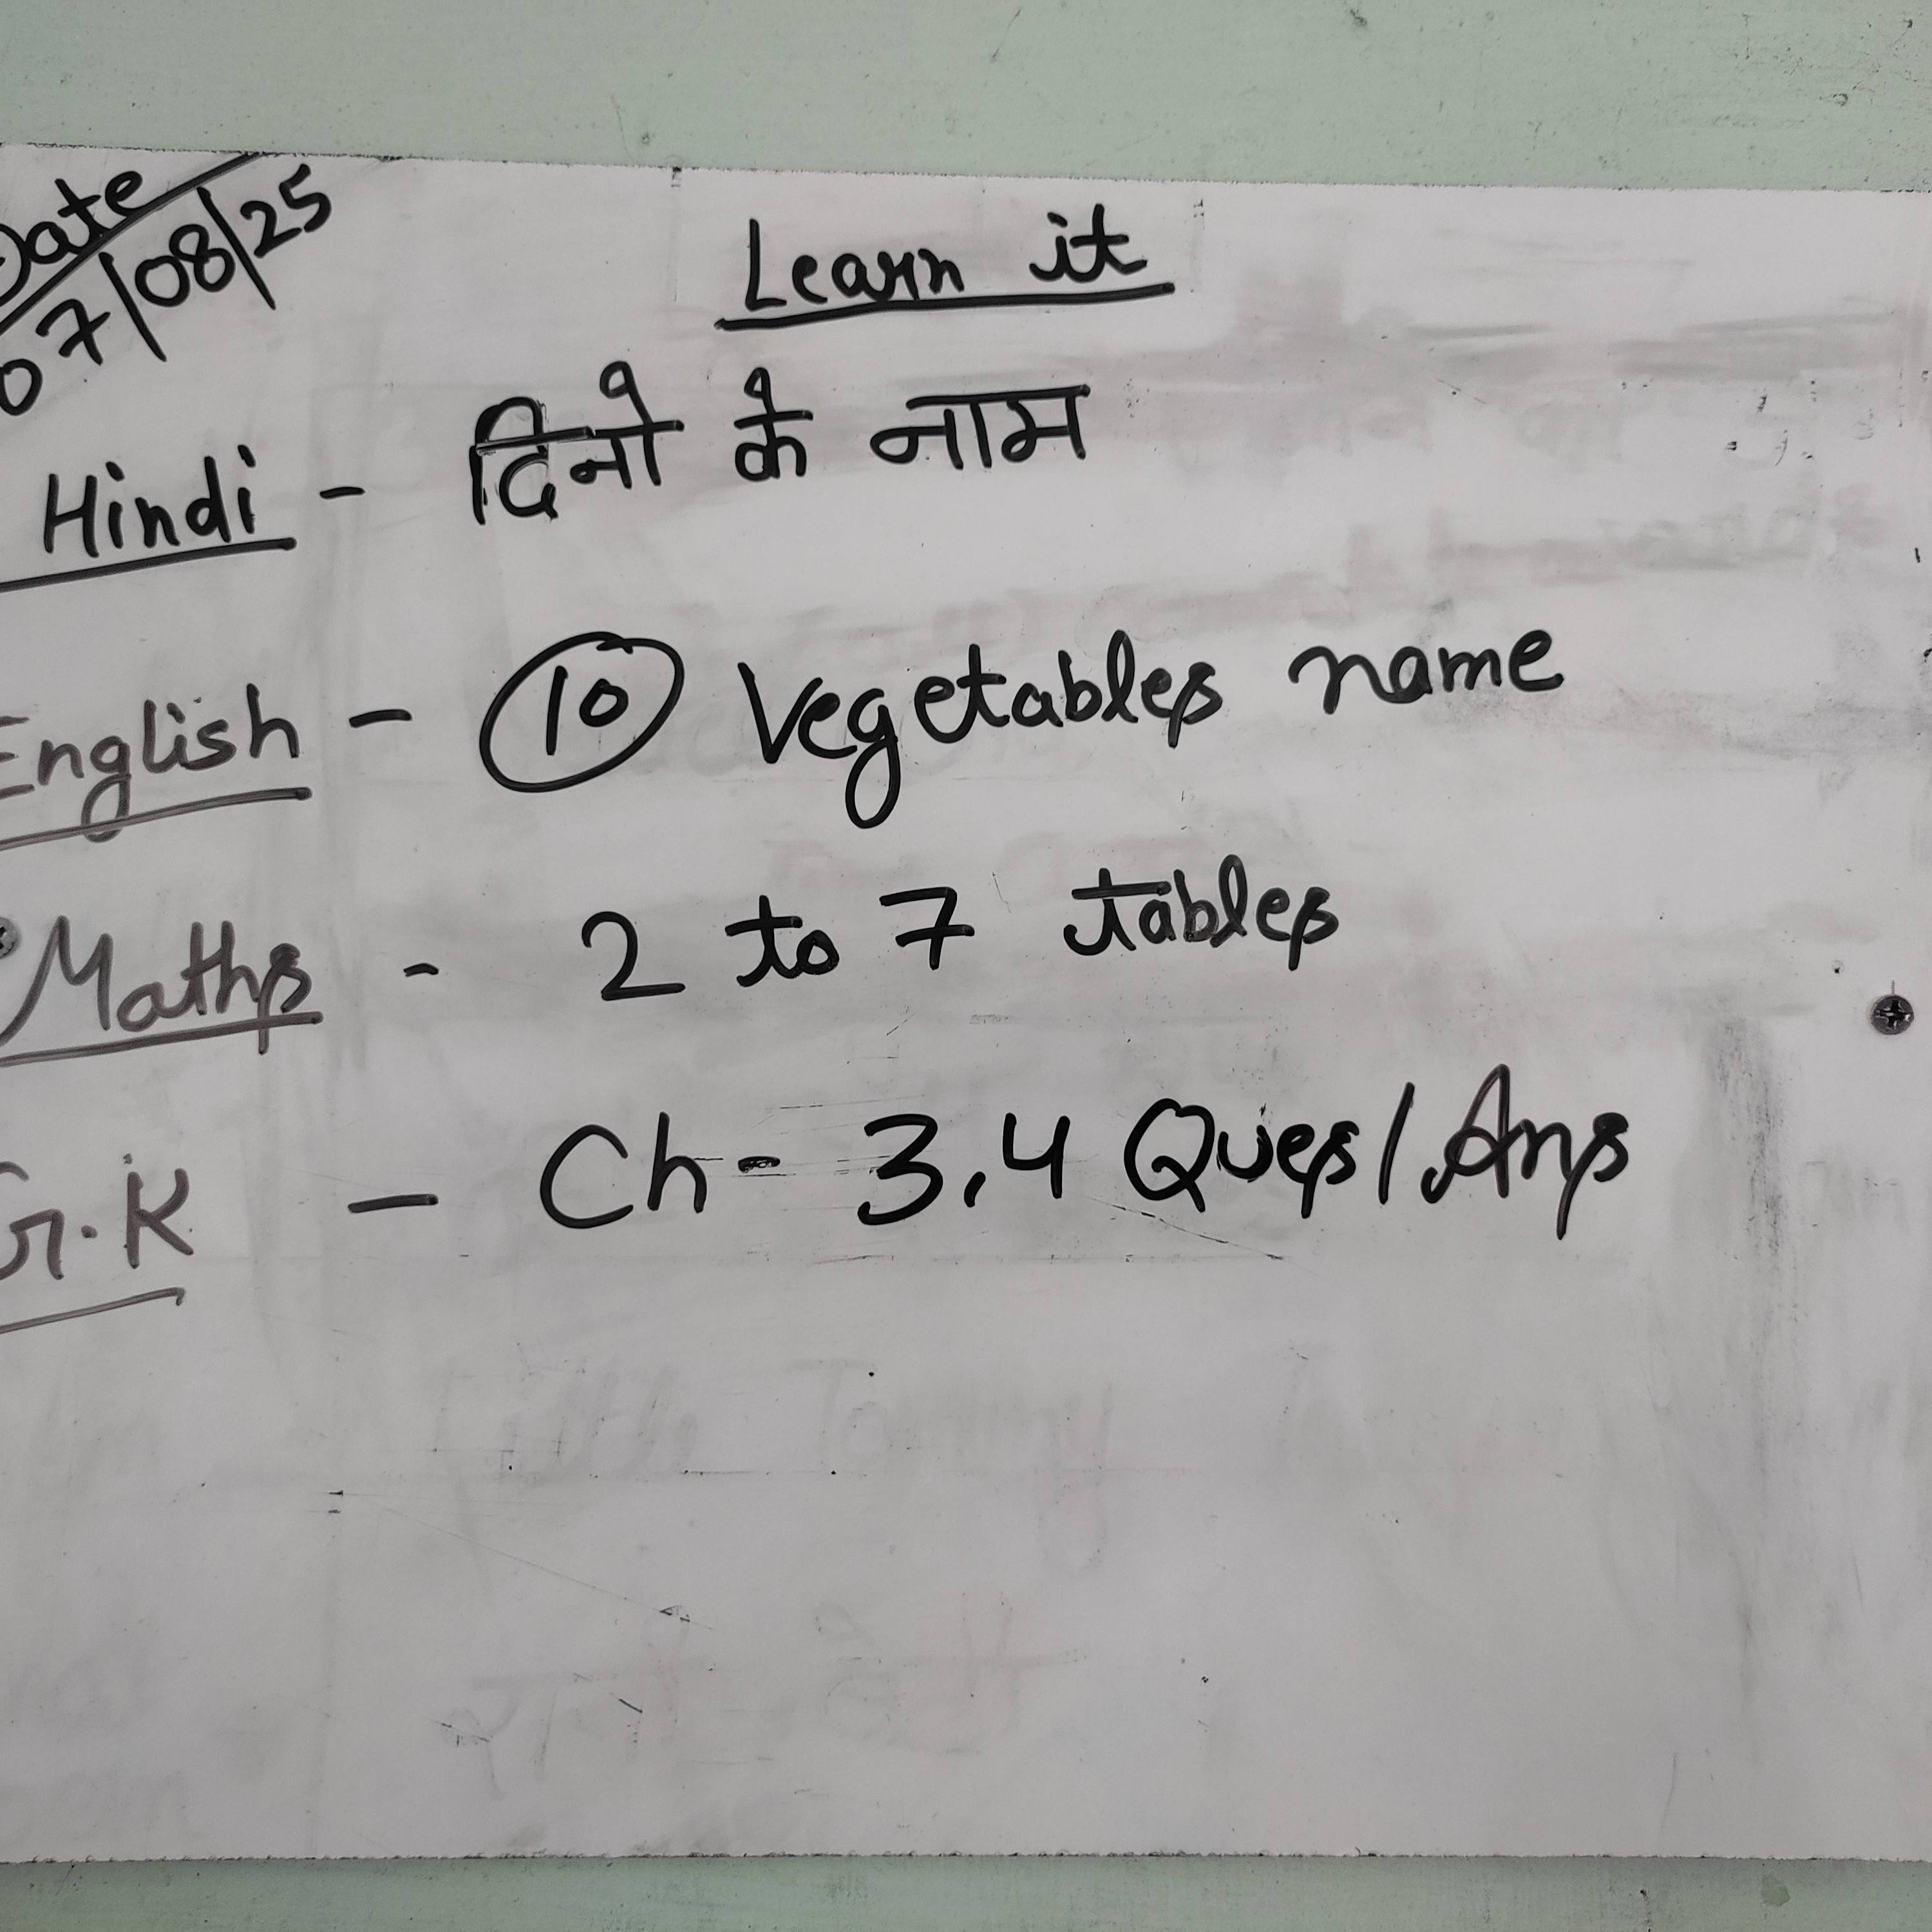 Date
07/08/25
Learn it
Hindi - दिनो के नाम
English - 10 Vegetables name
Maths - 2 to 7 tables
G.K - Ch - 3,4 Ques/Ans